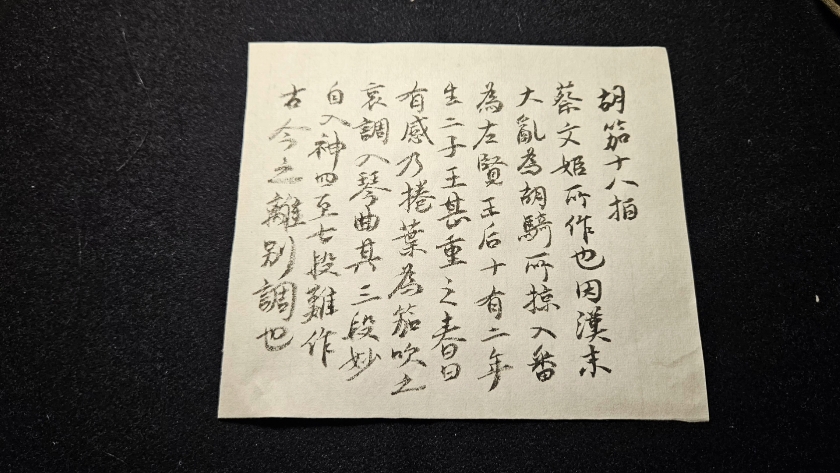 胡笳十八拍
蔡文姬所作也因漢末
大亂為胡騎所掠入番
為左賢王后十有二年
生二子王甚重之春日
有感乃捲葉為笳吹之
哀調入琴曲其三段妙
自入神四至七段難作
古今之離別調也